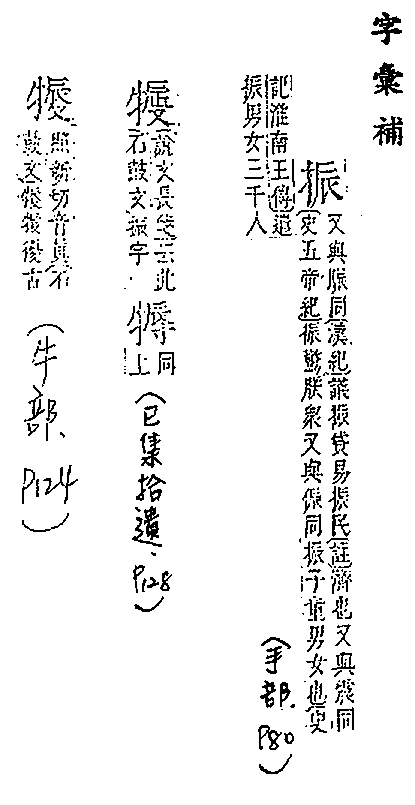 字彙補
振
又與賑同漢紀議振貸易振民註濟也又與震同
史五帝紀振驚朕衆又與侲同振子童男女也史
記淮南王傳遣
振男女三千人
(手部. P80)
說文長箋云此
石鼓文振字
同
上
(巳集拾遺. P128)
照新切音真石
鼓文
(牛部. P124)